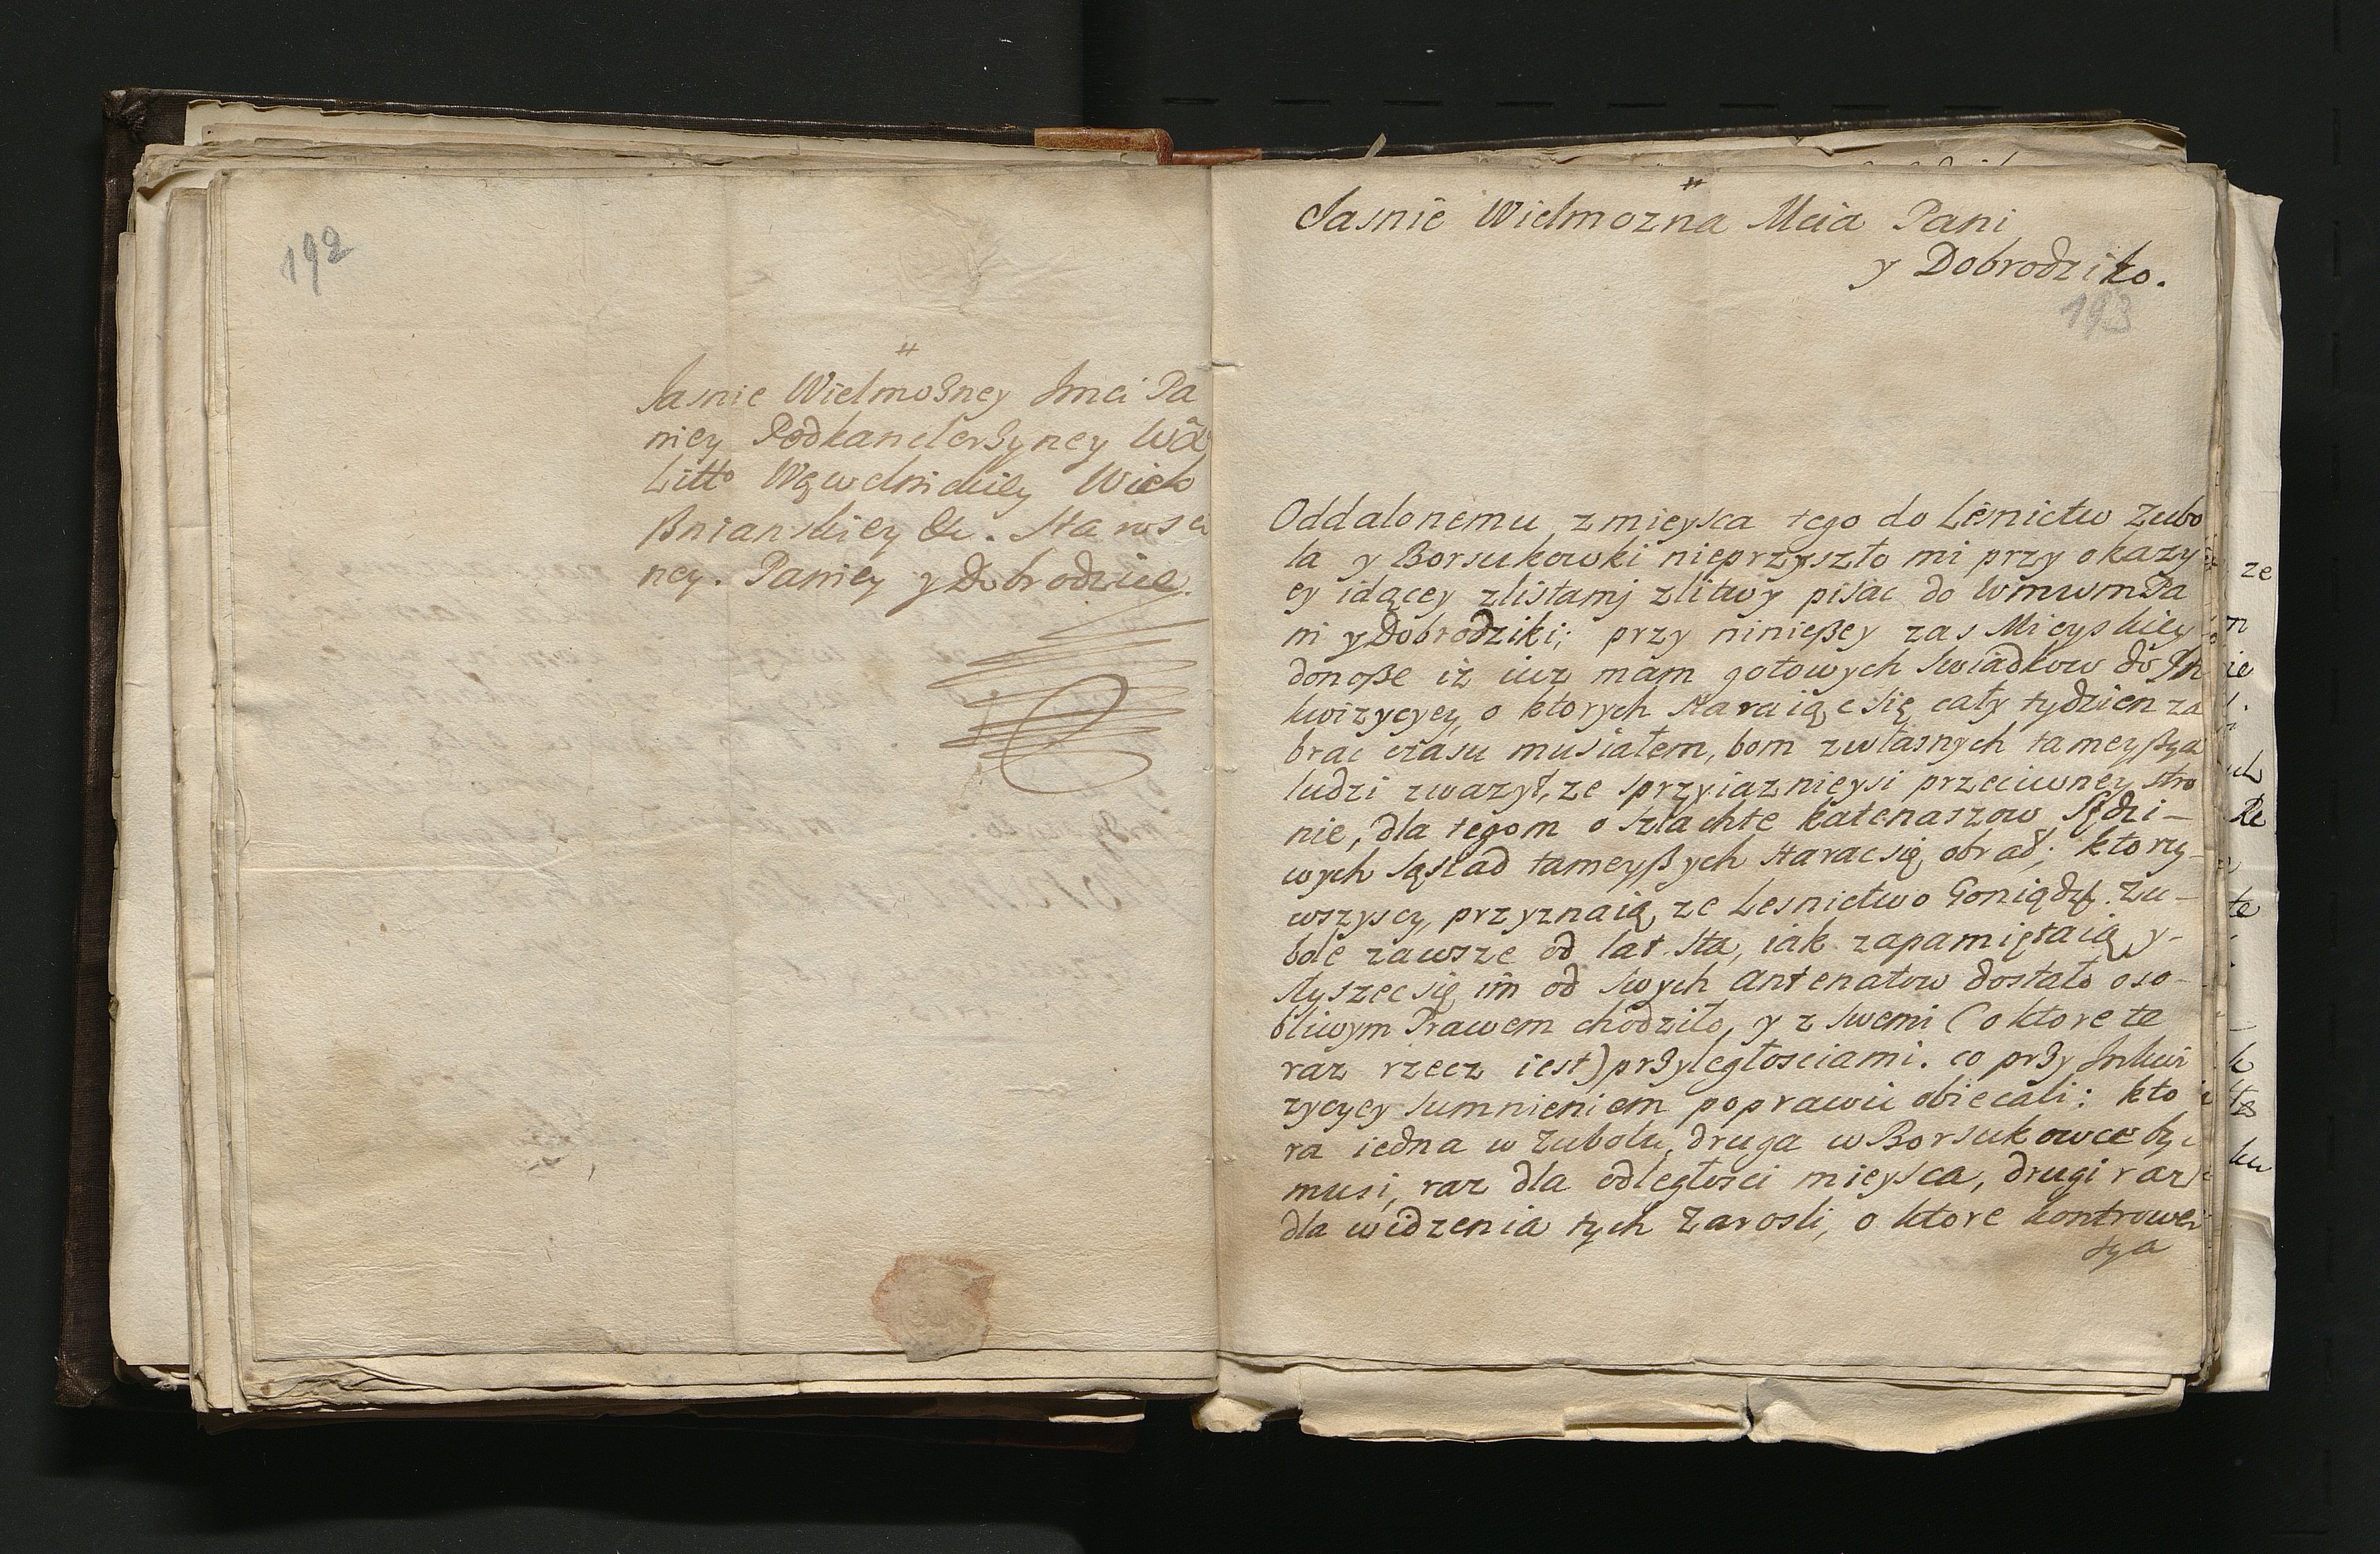 192
#
Jasnie Wielmożney Jmci Pa
niey Podkanclerzyney Wo
Litto Wąwelnickiey Wielo
ßnianskiey &c. Starosci
ney. Paniey y Dobrodzice.
#
Jasnie Wielmozna Mcia Pani
y Dobrodziko.
193
Oddalonemu zmieysca tego do Lesnictw Zubo
la y Borsukowki nieprzyszło mi przy okazy
ey idącey zlistamj zlitwy pisac do WmwmPa
ni y Dobrodziki; przy ninießey zas Mieyskiey
donoße iż iuz mam gotowych swiadkow do In
kwizycyey, o ktorych staraiąc się cały tydzien za
brac czasu musiałem, bom zwłasnych tameyßya
ludzi zwazył, ze sprzyiaznieysi przeciwney stro
nie, dla tegom o szlachte katenaszow Sędzi-
wych sąsiad tameyßych starac się obrał; ktorzy
wszyscy, przyznaią, ze Lesnictwo Goniądz. Zu-
bole zawsze od lat sta, iak zapamiętaią y-
słyszec się im od swych antenatow dostało oso-
bliwym Prawem chodziło, y z swemi (o ktore te
raz rzecz iest) przyległosciami. co przy Inkwi
zycyey sumnieniem poprawic obiecali: kto
ra iedna w Zubolu, druga w Borsukowce by
musi, raz dla odległosci mieysca, drugi raz
dla widzenia tych Zarosli, o ktore kontrower
sya